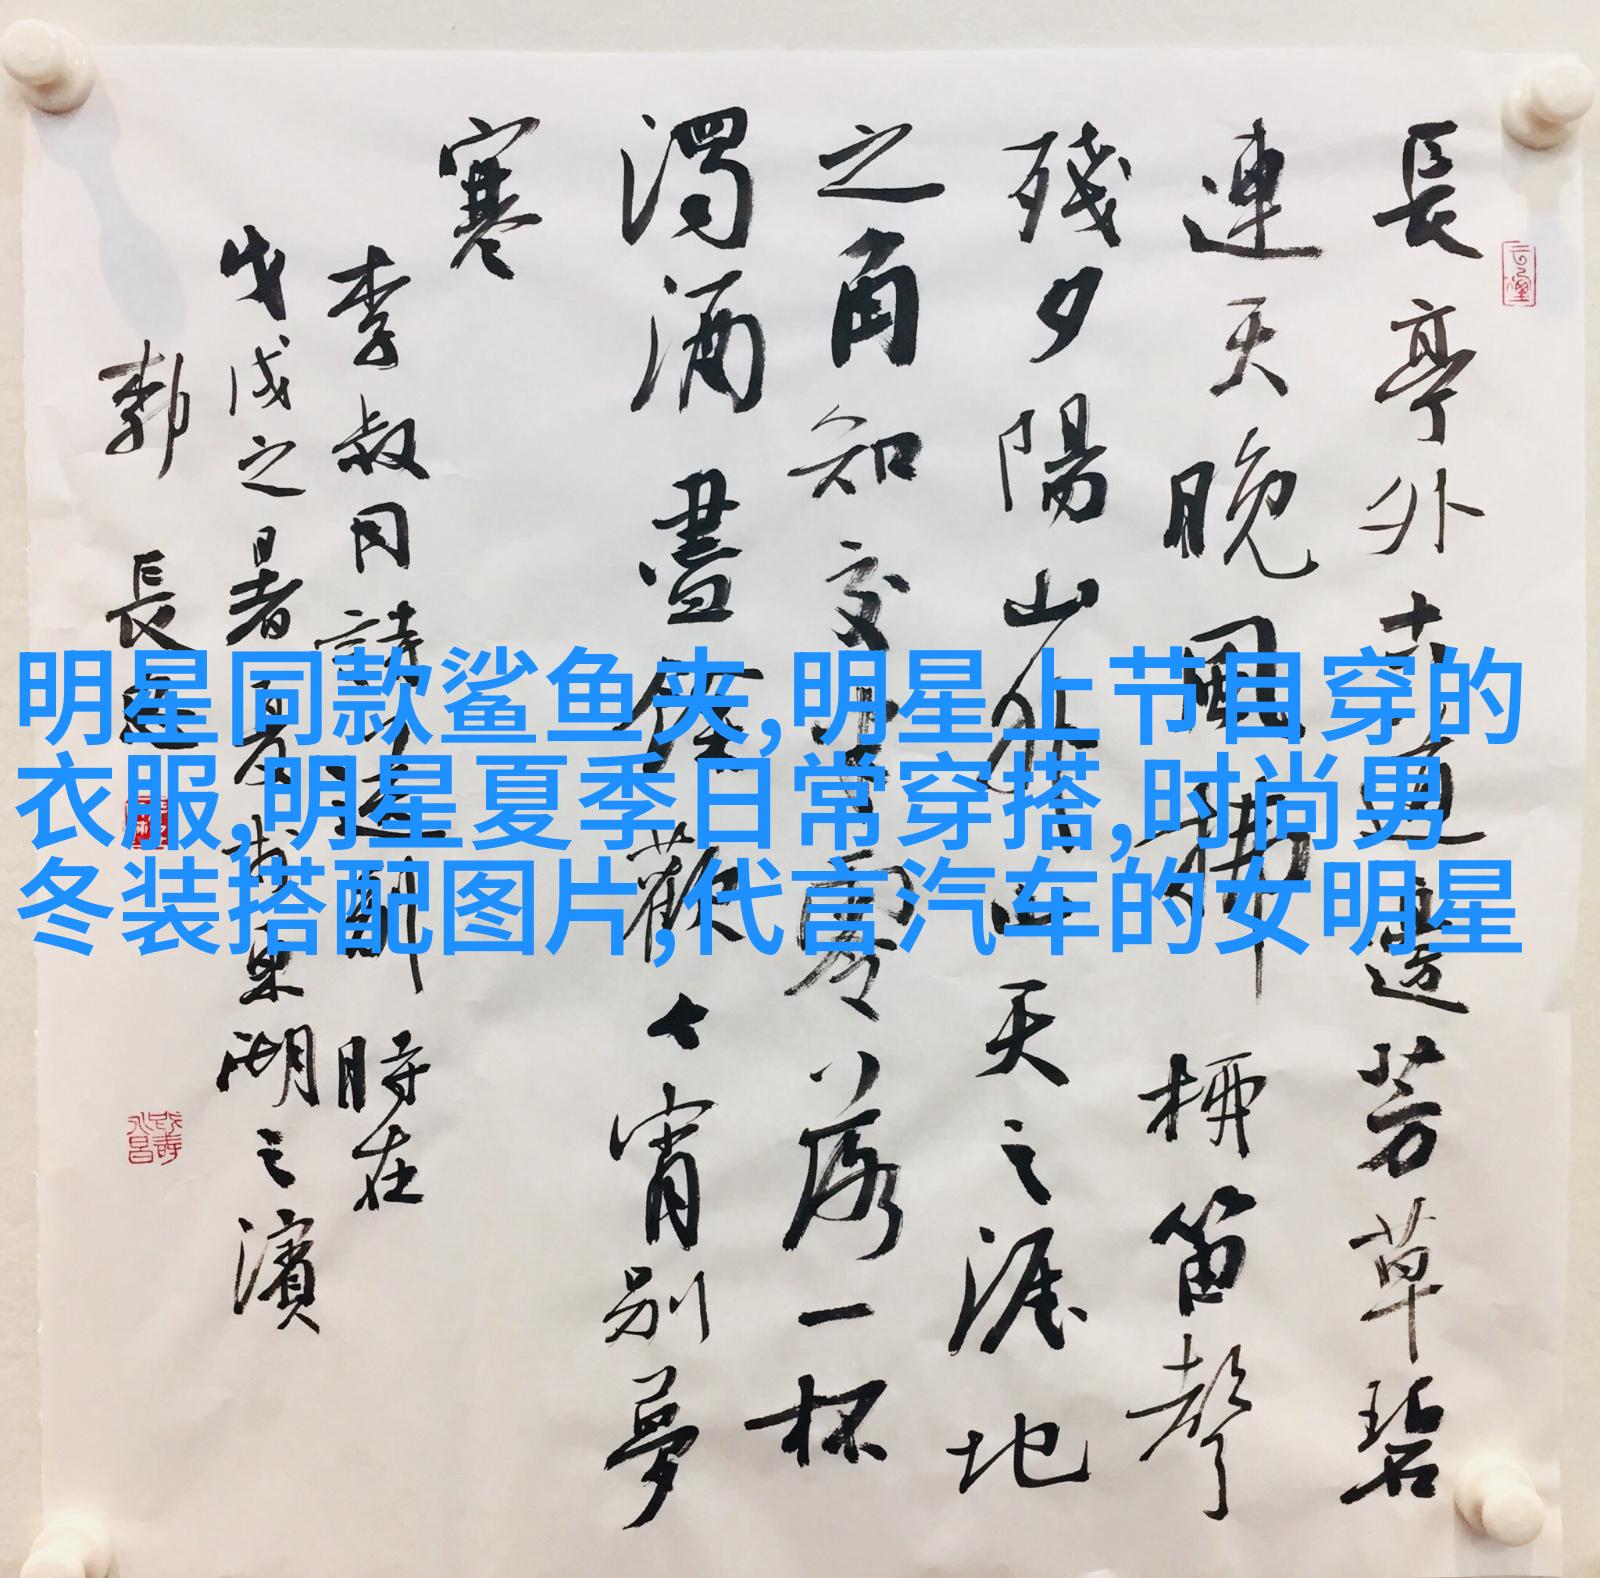 長亭外古道邊芳草碧
連天晚風拂柳笛聲
殘夕陽山外山天之涯地
之角知交半零落一杯
濁酒盡餘歡今宵別夢
寒
李叔同詩送別 時在
戊戌之暑夏於東湖之濱
郭長
明星同款鲨鱼夹,明星上节目穿的
衣服,明星夏季日常穿搭,时尚男
冬装搭配图片,代言汽车的女明星